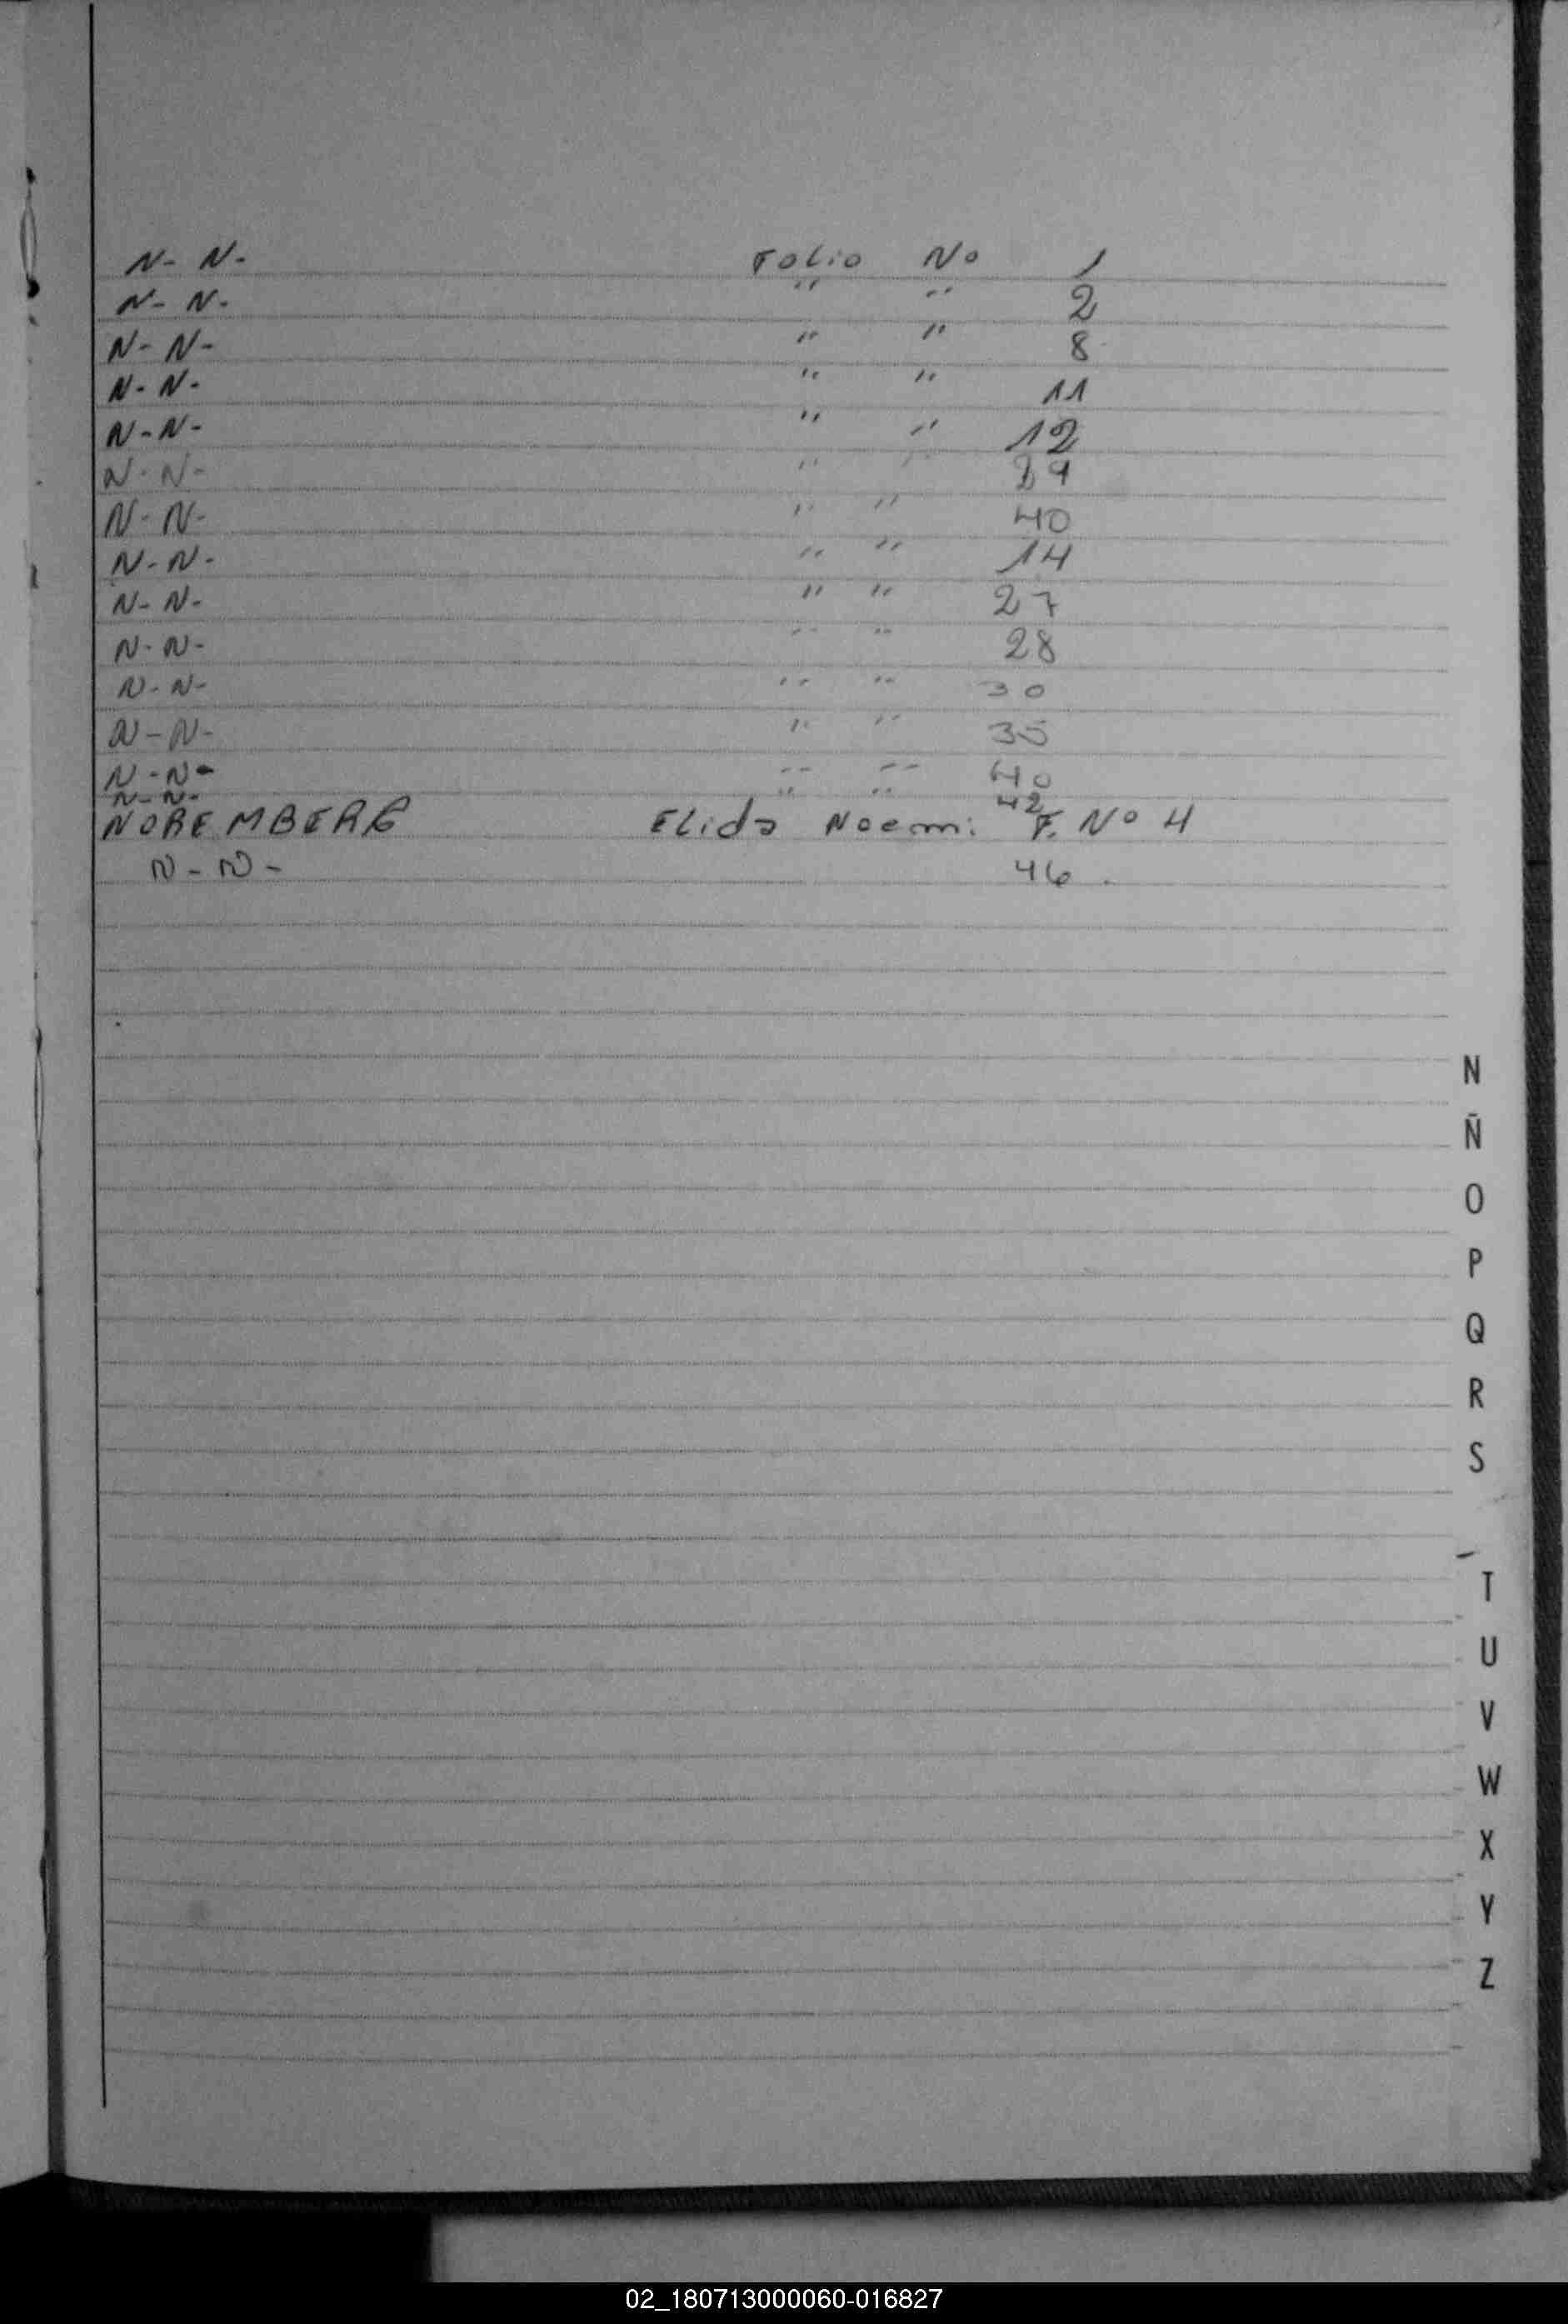 N- N- Folio No 1
N- N- " " 2
N- N- " " 8
N- N- " " 11
N- N- " " 12
N- N- " " 39
N- N- " " 40
N- N- " " 14
N- N- " " 27
N- N- " " 28
N- N- " " 30
N- N- " " 35
N- N- " " 40
N- N- " " 42
NOREMBERG Elida Noemi F. No 4
N- N- 46.
N
Ñ
O
P
Q
R
S
T
U
V
W
X
Y
Z
02_180713000060-016827